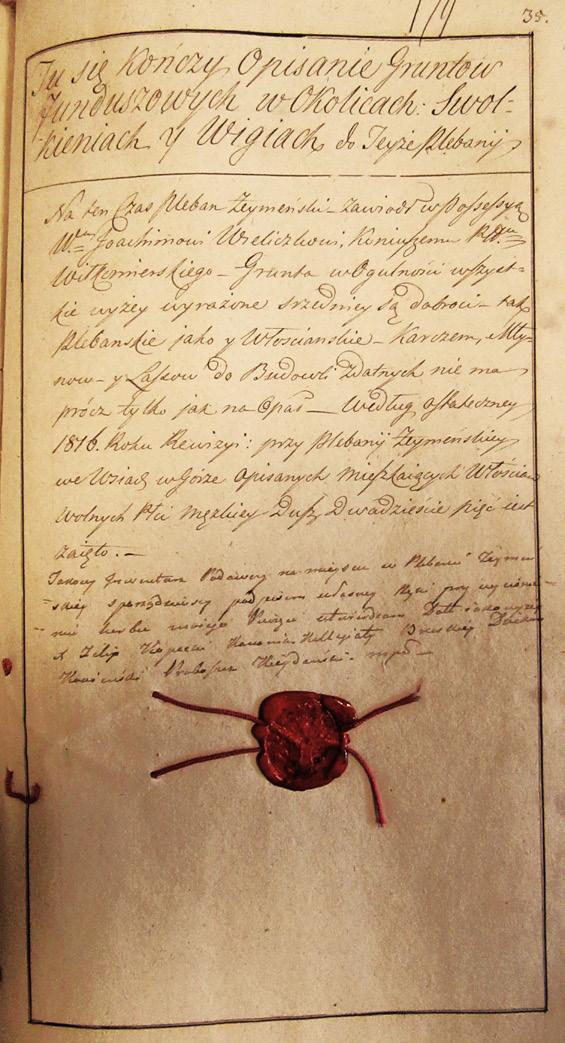 35.
Tu się Kończy Opisanie Gruntow
Funduszowych w Okolicach: Swol-
kieniach y Wigiach do Teyże Plebanij
Na ten Czas Pleban Żeymeński zawiodł w Possessyą
Joachimowi Wieliczkowi, Koniuszemu
Wiłkomierskiego – Grunta w Ogulności wszyst-
kie wyżey wyrażone srzedniey są dobroci – tak
Plebanskie jako y Włościanskie – Karczem, Mły-
now – y Lasow do Budowli Zdatnych nie ma
prócz tylko jak na Opał – Według ostateczney
1816. Roku Rewizyi: przy Plebanij Żeymeńskiey
we Wsiach w Górze Opisanych mieszkaiących Włościan
Wolnych Płci męzkiey Dusz Dwadzieście pięć iest
zaięto. –
Takowy Inwentarz Podawczy na mieyscu w Plebanii Żeymeń
-skiey sporządzony podpisem własney Ręki przy wyciśnie-
niu herbu moiego Pieczęci utwierdzam
X Kopecki Kanonik Kollegiaty Brzeskiey
Proboszcz